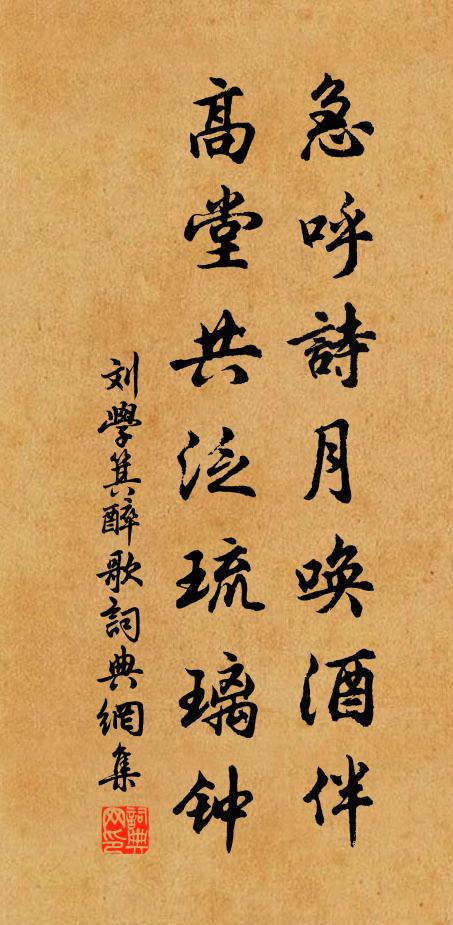 急呼詩月唤酒伴
高堂共泛琉璃钟
刘學箕醉歌詞典網集
詞典网印